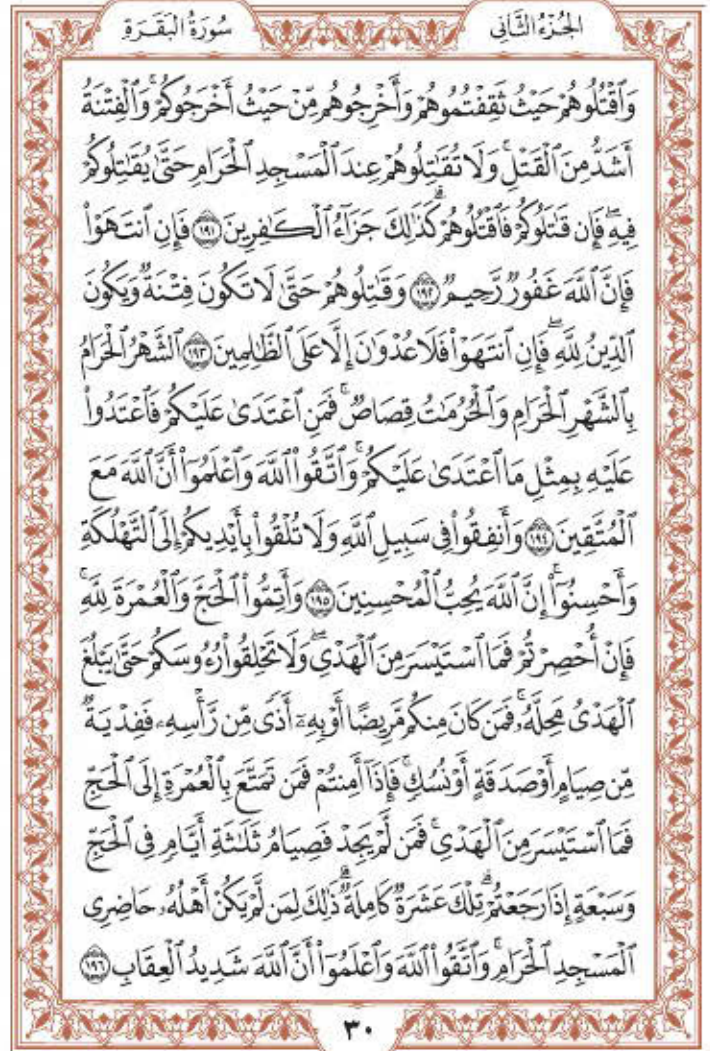 الجُزْءُ الثَّانِي
سُورَةُ البَقَرَةِ
وَٱقْتُلُوهُمْ حَيْثُ ثَقِفْتُمُوهُمْ وَأَخْرِجُوهُم مِّنْ حَيْثُ أَخْرَجُوكُمْۚ وَٱلْفِتْنَةُ
أَشَدُّ مِنَ ٱلْقَتْلِۚ وَلَا تُقَٰتِلُوهُمْ عِندَ ٱلْمَسْجِدِ ٱلْحَرَامِ حَتَّىٰ يُقَٰتِلُوكُمْ
فِيهِۖ فَإِن قَٰتَلُوكُمْ فَٱقْتُلُوهُمْۗ كَذَٰلِكَ جَزَآءُ ٱلْكَٰفِرِينَ ١٩١ فَإِنِ ٱنتَهَوْا۟
فَإِنَّ ٱللَّهَ غَفُورٌ رَّحِيمٌ ١٩٢ وَقَٰتِلُوهُمْ حَتَّىٰ لَا تَكُونَ فِتْنَةٌ وَيَكُونَ
ٱلدِّينُ لِلَّهِۖ فَإِنِ ٱنتَهَوْا۟ فَلَا عُدْوَٰنَ إِلَّا عَلَى ٱلظَّٰلِمِينَ ١٩٣ ٱلشَّهْرُ ٱلْحَرَامُ
بِٱلشَّهْرِ ٱلْحَرَامِ وَٱلْحُرُمَٰتُ قِصَاصٌۚ فَمَنِ ٱعْتَدَىٰ عَلَيْكُمْ فَٱعْتَدُوا۟
عَلَيْهِ بِمِثْلِ مَا ٱعْتَدَىٰ عَلَيْكُمْۚ وَٱتَّقُوا۟ ٱللَّهَ وَٱعْلَمُوٓا۟ أَنَّ ٱللَّهَ مَعَ
ٱلْمُتَّقِينَ ١٩٤ وَأَنفِقُوا۟ فِى سَبِيلِ ٱللَّهِ وَلَا تُلْقُوا۟ بِأَيْدِيكُمْ إِلَى ٱلتَّهْلُكَةِ
وَأَحْسِنُوٓا۟ۚ إِنَّ ٱللَّهَ يُحِبُّ ٱلْمُحْسِنِينَ ١٩٥ وَأَتِمُّوا۟ ٱلْحَجَّ وَٱلْعُمْرَةَ لِلَّهِۚ
فَإِنْ أُحْصِرْتُمْ فَمَا ٱسْتَيْسَرَ مِنَ ٱلْهَدْىِۖ وَلَا تَحْلِقُوا۟ رُءُوسَكُمْ حَتَّىٰ يَبْلُغَ
ٱلْهَدْىُ مَحِلَّهُۥۚ فَمَن كَانَ مِنكُم مَّرِيضًا أَوْ بِهِۦٓ أَذًى مِّن رَّأْسِهِۦ فَفِدْيَةٌ
مِّن صِيَامٍ أَوْ صَدَقَةٍ أَوْ نُسُكٍۚ فَإِذَآ أَمِنتُمْ فَمَن تَمَتَّعَ بِٱلْعُمْرَةِ إِلَى ٱلْحَجِّ
فَمَا ٱسْتَيْسَرَ مِنَ ٱلْهَدْىِۚ فَمَن لَّمْ يَجِدْ فَصِيَامُ ثَلَٰثَةِ أَيَّامٍ فِى ٱلْحَجِّ
وَسَبْعَةٍ إِذَا رَجَعْتُمْۗ تِلْكَ عَشَرَةٌ كَامِلَةٌۗ ذَٰلِكَ لِمَن لَّمْ يَكُنْ أَهْلُهُۥ حَاضِرِى
ٱلْمَسْجِدِ ٱلْحَرَامِۚ وَٱتَّقُوا۟ ٱللَّهَ وَٱعْلَمُوٓا۟ أَنَّ ٱللَّهَ شَدِيدُ ٱلْعِقَابِ ١٩٦
٣٠